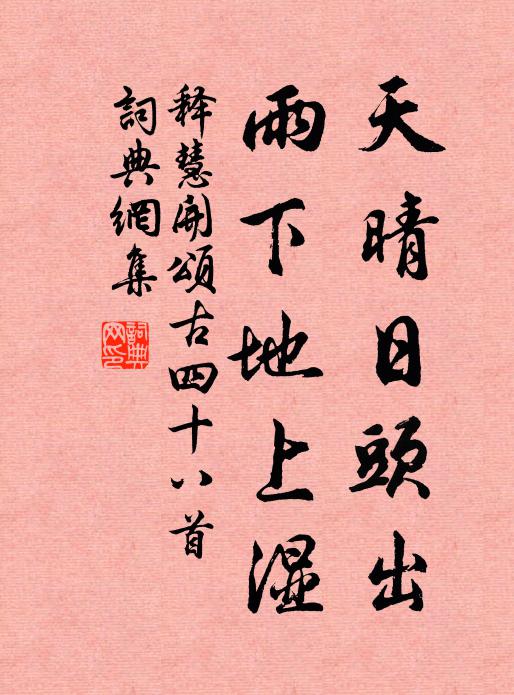 天晴日頭出
雨下地上湿
释慧開頌古四十八首
詞典網集
詞典网印